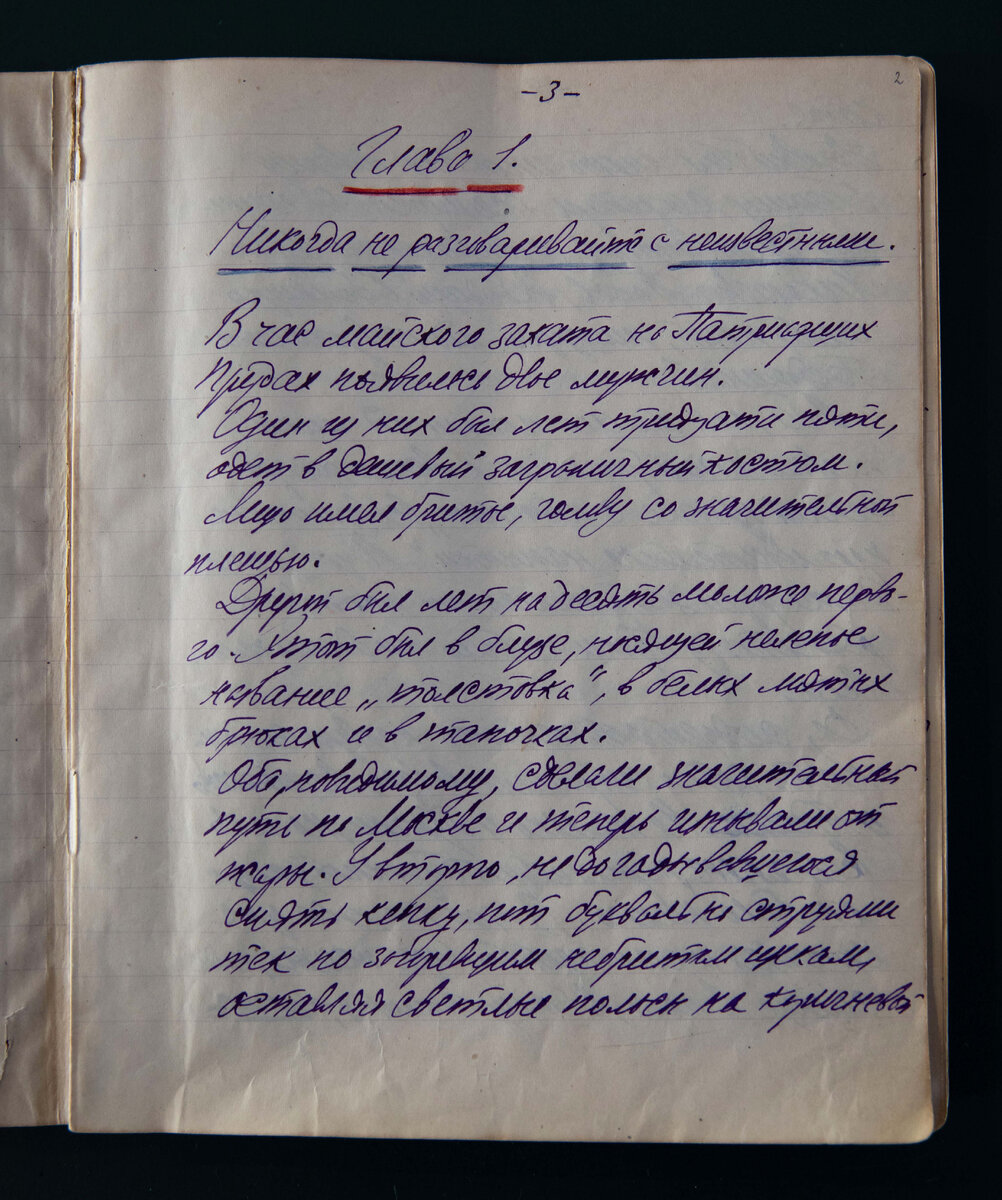 -3-
2
Глава 1.
Никогда не разговаривайте с неизвестными.
В час майского заката на Патриарших
Прудах появилось двое мужчин.
Один из них был лет тридцати пяти,
одет в дешевый заграничный костюм.
Лицо имел бритое, голову со значительной
плешью.
Другой был лет на десять моложе перво-
го. Этот был в блузе, носящей нелепое
название „толстовка“, в белых мятых
брюках и в тапочках.
Оба, повидимому, сделали значительный
путь по Москве и теперь изнывали от
жары. У второго, не догадавшегося
снять кепку, пот буквально струями
тек по загоревшим небритым щекам,
оставляя светлые полосы на коричневой